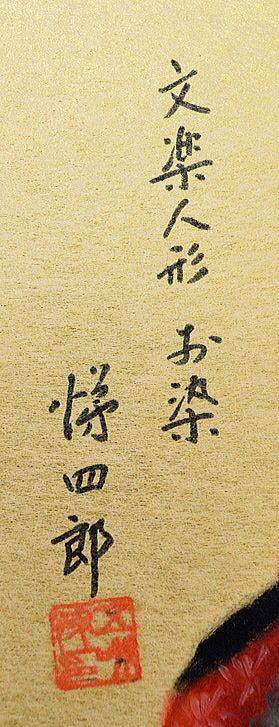 文楽人形 お染
悌四郎